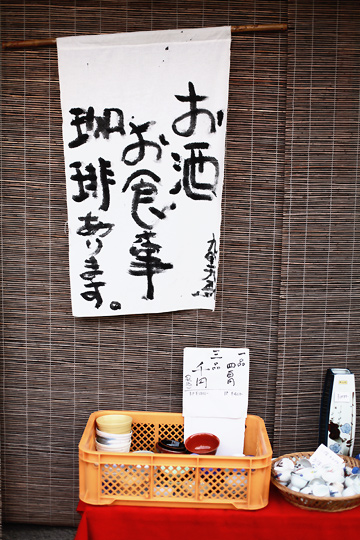 お酒
お食事
珈琲あります。
一品
四百円
三品
千円